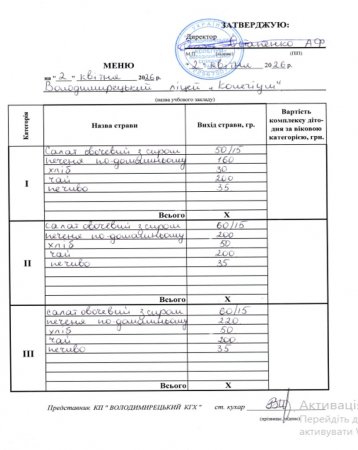 ЗАТВЕРДЖУЮ:
Директор АФ
М.П. (ПІП)
МЕНЮ "2" квітня 2026 р.
на "2" квітня 2026 р.
Володимирецький ліцей "Колегіум"
(назва учбового закладу)
Категорія Назва страви Вихід страви, гр. Вартість комплекту діто-дня за віковою категорією, грн.
I
Салат овочевий з сиром 50/15
печеня по-домашньому 160
хліб 30
чай 200
печиво 35
Всього X
II
Салат овочевий з сиром 60/15
печеня по-домашньому 200
хліб 50
чай 200
печиво 35
Всього X
III
Салат овочевий з сиром 60/15
печеня по-домашньому 220
хліб 50
чай 200
печиво 35
Всього X
Представник КП " ВОЛОДИМИРЕЦЬКИЙ КГХ " ст. кухар
(прізвище, підпис)
Активаці
Перейдіть д
активувати